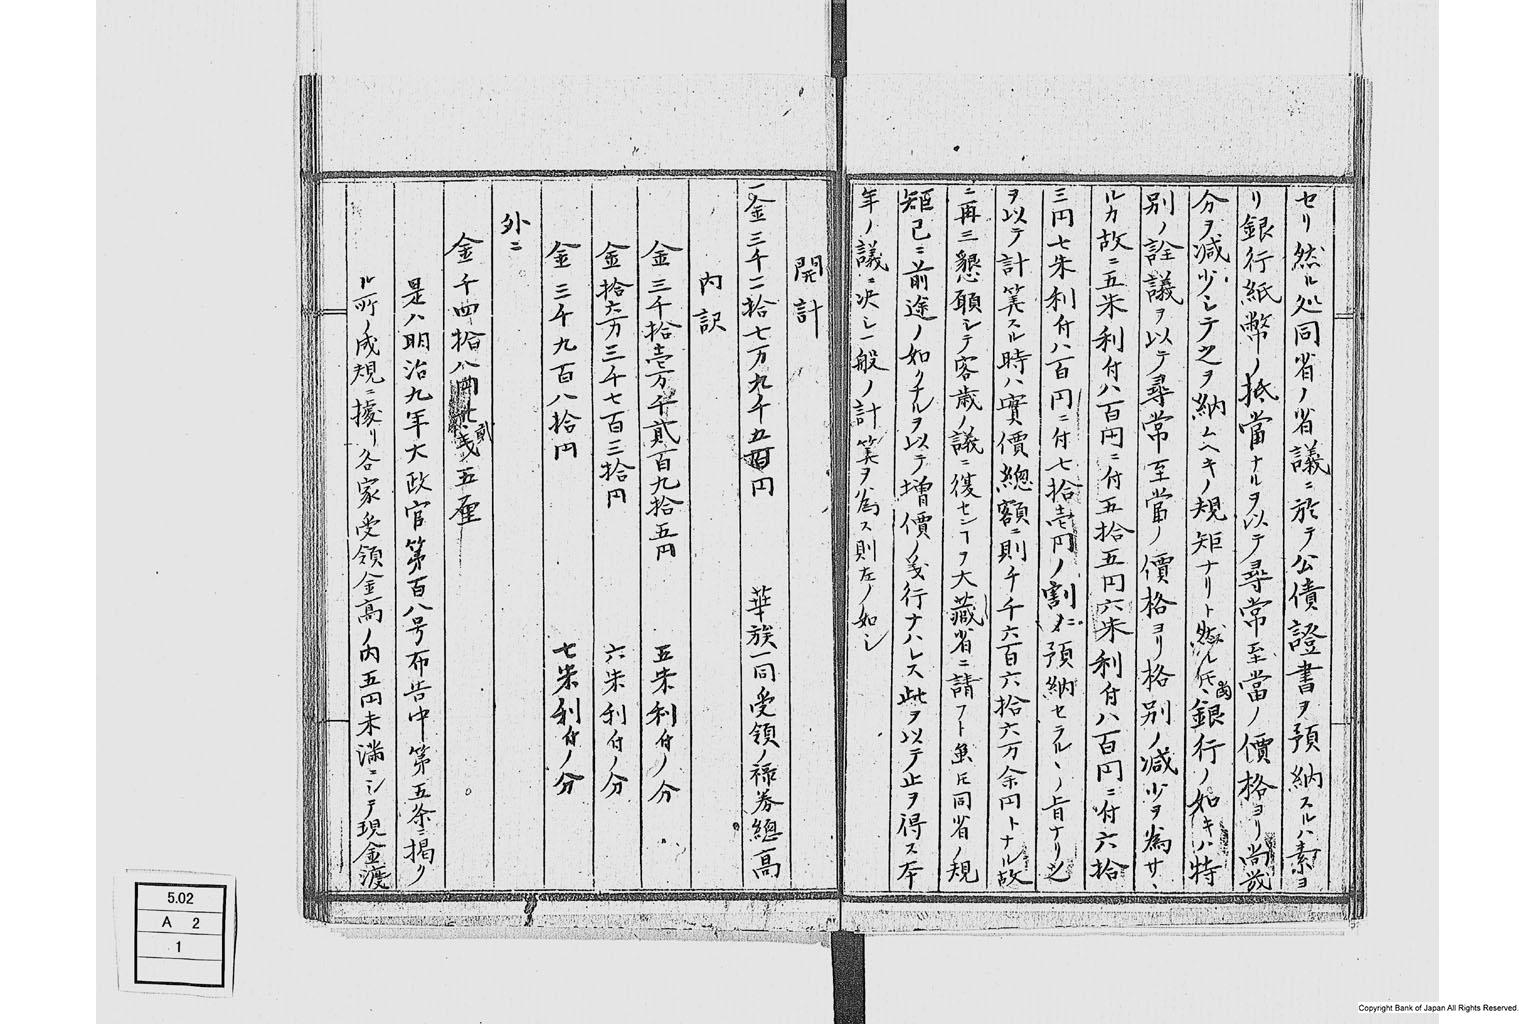 セリ然ル処同省ノ省議ニ於テ公債證書ヲ預納スルハ素ヨ
リ銀行紙幣ノ抵當ナルヲ以テ尋常至當ノ價格ヨリ尚幾
分ヲ減少シテ之ヲ納ムヘキノ規矩ナリト然ル𪜈當銀行ノ如キハ特
別ノ詮議ヲ以テ尋常至當ノ價格ヨリ格別ノ減少ヲ為サヽ
ルカ故ニ五朱利付八百円ニ付五拾五円六朱利付八百円ニ付六拾
三円七朱利付八百円ニ付七拾壱円ノ割ニ預納セラルヽノ旨ナリ之
ヲ以テ計筭スル時ハ實價總額ニ則チ千六百六拾六万余円トナル故
ニ再三懇願シテ客歳ノ議ニ復センヿヲ大藏省ニ請フト雖𪜈同省ノ規
矩已ニ前途ノ如クナルヲ以テ増價ノ義行ナハレス此ヲ以テ止ヲ得ス本
年ノ議ニ决シ一般ノ計筭ヲ為ス則左ノ如シ
開計
一金三千二拾七万九千五百円 華族一同受領ノ禄券總高
内訳
金三千拾壱万千貳百九拾五円 五朱利付ノ分
金拾六万三千七百三拾円 六朱利付ノ分
金三千九百八拾円 七朱利付ノ分
外ニ
金千四拾八円 貳 五厘
是ハ明治九年大政官第百八号布告中第五条ニ掲ク
ル所ノ成規ニ據リ各家受領金高ノ内五円未満ニシテ現金渡
5.02
A 2
1
Copyright Bank of Japan All Rights Reserved.